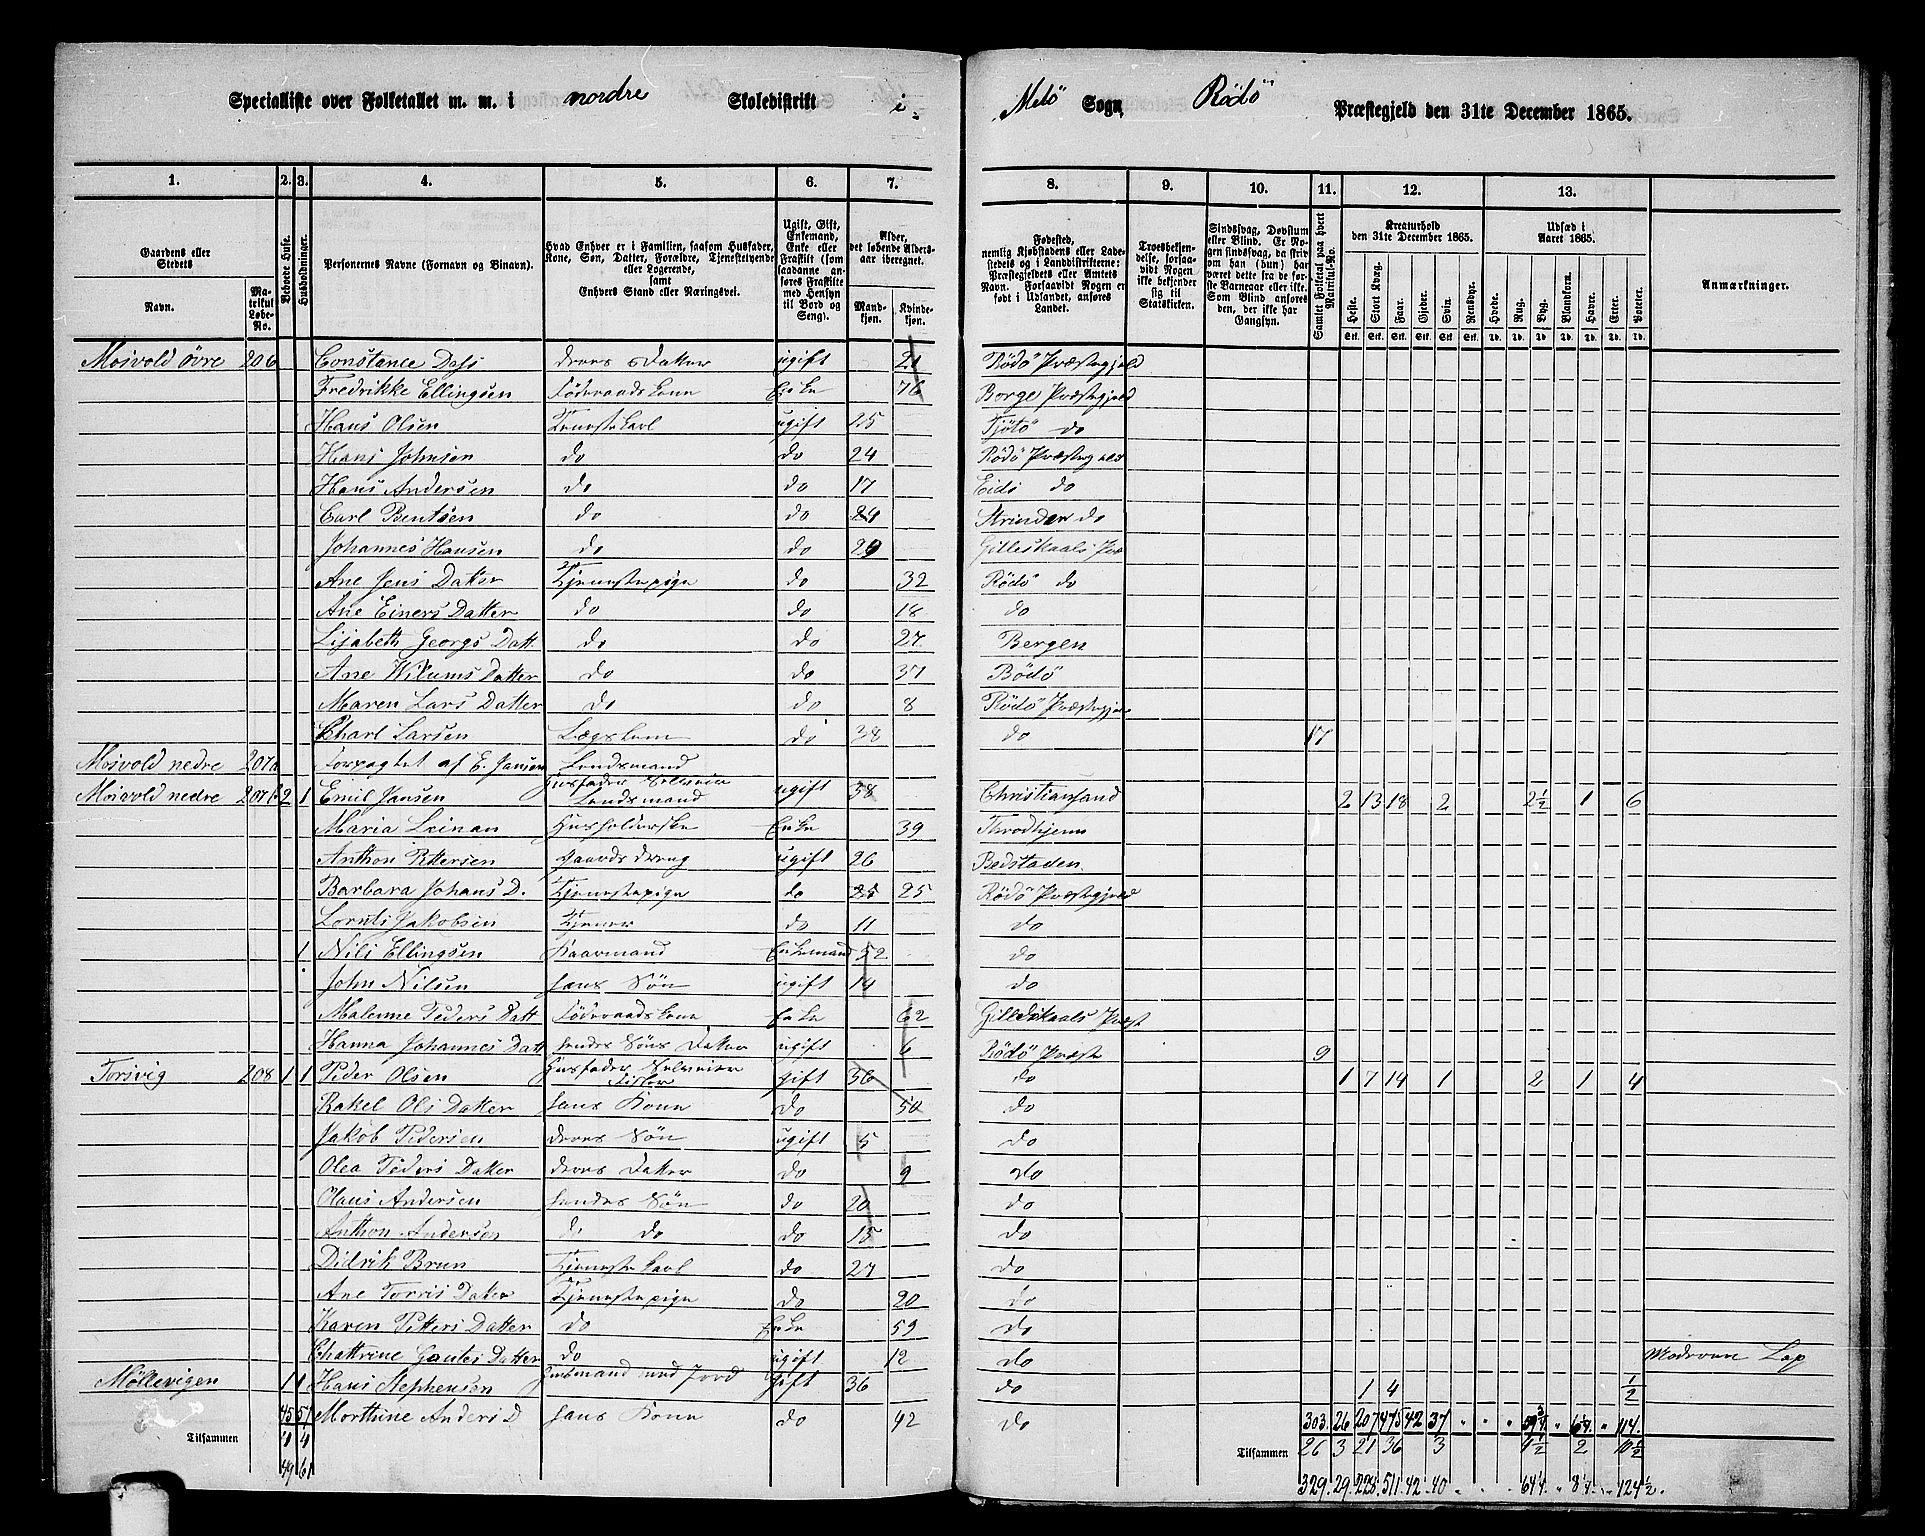 Specialliste over Folketallet m. m. i nordre Skoledistrikt i Melö Sogn, Rödö Præstegjeld den 31te December 1865.
1. 2. 3. 4. 5. 6. 7. 8. 9. 10. 11. 12. 13.
Gaardens eller Stedets
Navn.
Matrikul Løbe-No.
Beboede Huse.
Husholdninger.
Personernes Navne (Fornavn og Binavn).
Hvad Enhver er i Familien, saasom Husfader, Kone, Søn, Datter, Forældre, Tjenestetyende eller Logerende, samt Enhvers Stand eller Næringsvei.
Ugift, Gift, Enkemand, Enke eller Fraskilt (som saadanne anføres Fraskilte med Hensyn til Bord og Seng).
Alder, det løbende Alders-aar iberegnet.
Mandkjøn.
Kvindekjøn.
Fødested, nemlig Kjøbstadens eller Ladestedets og i Landdistrikterne: Præstegjeldets eller Amtets Navn. Forsaavidt Nogen er født i Udlandet, anføres Landet.
Troesbekjendelse, forsaavidt Nogen ikke bekjender sig til Statskirken.
Sindssvag, Døvstum eller Blind. Er Nogen sindssvag, da skriv om han (hun) har været dette fra de første Barneaar eller ikke. Som Blind ansøres den, der ikke har Gangsyn.
Samlet Folketal paa hvert Matrikul-No.
Kreaturhold den 31te December 1865.
Heste. Stort Kvæg. Faar. Gjeder. Svin. Rensdyr.
Udsæd i Aaret 1865.
Hvede. Rug. Byg. Blandkorn. Havre. Erter. Poteter.
Anmærkninger.
Moivold övre 206 Constance Dass deres Datter ugift 21 Rödö Præstegjeld
Fredrikke Ellingsen Föderaadskone Enke 76 Borge Præstegjeld
Hans Olsen Tenestekarl ugift 25 Tjötö do
Hans Johnsen do do 24 Rödö Præstegjeld
Hans Andersen do do 17 Eids do
Carl Bentsen do do 24 Strinden do
Johannes Hansen do do 29 Gilleskaals Præ
Ane Jens Datter Tjenestepige do 32 Rödö do
Ane Einers Datter do do 18 do
Lisabeth Georgs Datt. do do 27 Bergen
Ane Wilums Datter do do 37 Bödö
Maren Lars Datter do do 8 Rödö Præstegjeld
Charl Larsen Lægslem do 38 do 17
Moivold nedre 207a Forpagtet af E. Jansen Lendsmand
Moivold nedre 207b 2 1 Emil Jansen Husfader Selveier Lendsmand ugift 38 Christiansand 2 13 18 2 2½ 1 6
Maria Leinan Husholderske Enke 39 Throdhjem
Anthon Pettersen Gaardsdreng ugift 26 Bedstaden
Barbara Johans D. Tjenestepige do 25 25 Rödö Præstegjeld
Lornts Jakobsen Tjener do 11 do
1 Nils Ellingsen Kaarmand Enkemand 52 do
John Nilsen hans Sön ugift 14 do
Malenne Peders Datt Föderaadskone Enke 62 Gilleskaals Præst
Hanna Johannes Datt hendes Söns Datter ugift 6 Rödö Præste 9
Torsvig 208 1 1 Peder Olsen Husfader Selveier Fisker gift 36 do 1 7 14 1 2 1 4
Rakel Ols Datter hans Kone do 50 do
Jakob Pedersen deres Sön ugift 5 do
Olea Peders Datter deres Datter do 9 do
Olaus Andersen hendes Sön do 20 do
Anthon Andersen do do do 15 do
Didrik Brun Tjenestekarl do 27 do
Ane Torris Datter Tjenestepige do 20 do
Karen Petters Datter do Enke 59 do
Chattrine Gantes Datter do ugift 12 do Moderen Lap
Möllevigen 1 1 Hans Stephensen Husmand med Jord gift 36 do 1 4 ½
45 57 Morthine Anders D hans Kone do 42 do 303. 26 207 475 42 37 59¾ 6¼ 114
Tilsammen 4 4 Tilsammen 26 3 21 36 3 4½ 2 10½
49 61 329. 29. 228. 511. 42. 40 64¼ 8¼ 124½.